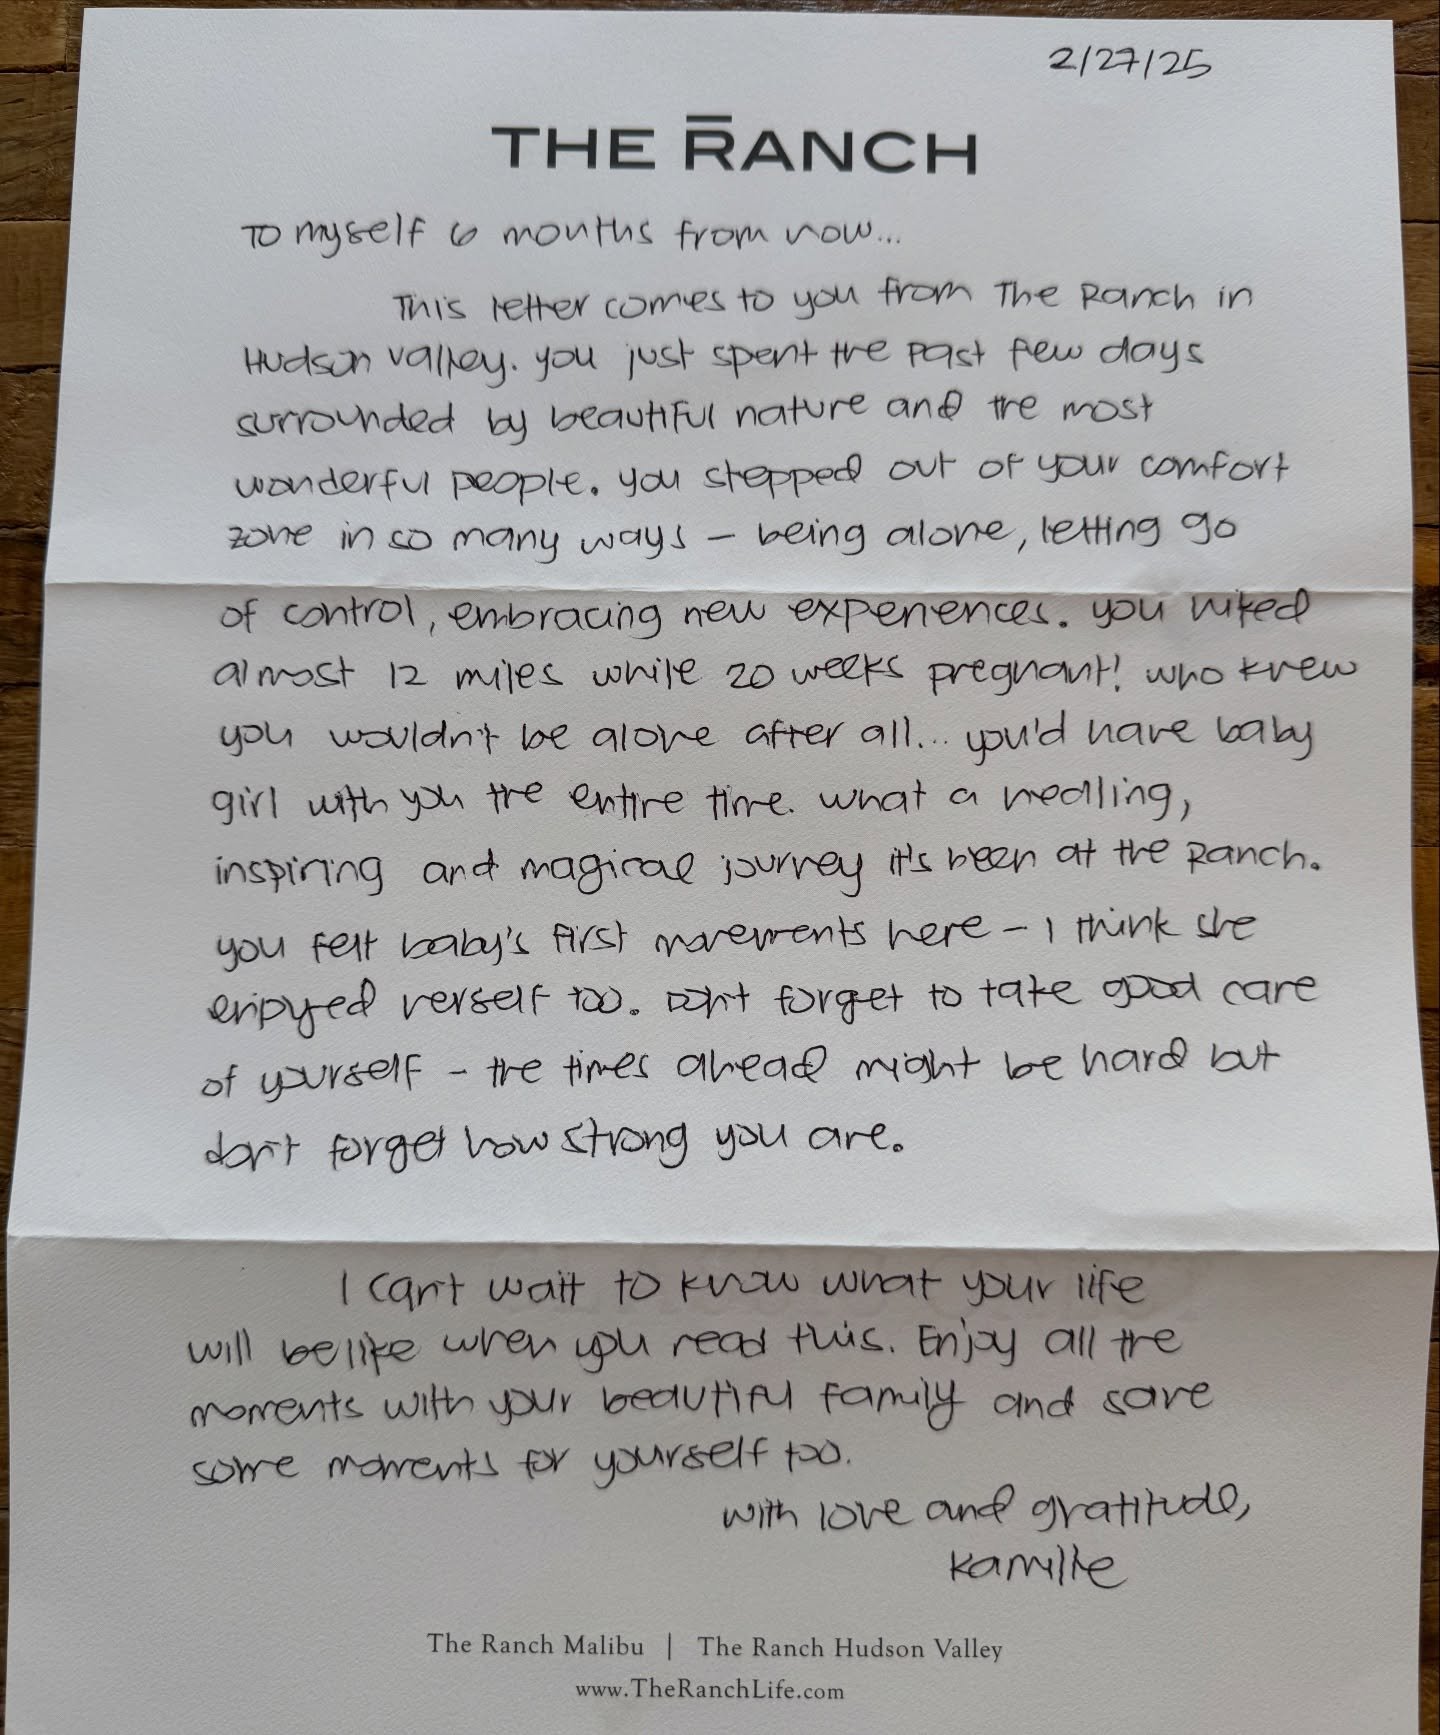 2/27/25
THE RANCH
To myself 6 months from now...
This letter comes to you from The Ranch in
Hudson Valley. You just spent the past few days
surrounded by beautiful nature and the most
wonderful people. You stepped out of your comfort
zone in so many ways - being alone, letting go
of control, embracing new experiences. You hiked
almost 12 miles while 20 weeks pregnant! Who knew
you wouldn't be alone after all... you'd have baby
girl with you the entire time. What a healing,
inspiring and magical journey it's been at the Ranch.
You felt baby's first movements here - I think she
enjoyed herself too. Don't forget to take good care
of yourself - the times ahead might be hard but
don't forget how strong you are.
I can't wait to know what your life
will be like when you read this. Enjoy all the
moments with your beautiful family and save
some moments for yourself too.
With love and gratitude,
Kamille
The Ranch Malibu | The Ranch Hudson Valley
www.TheRanchLife.com